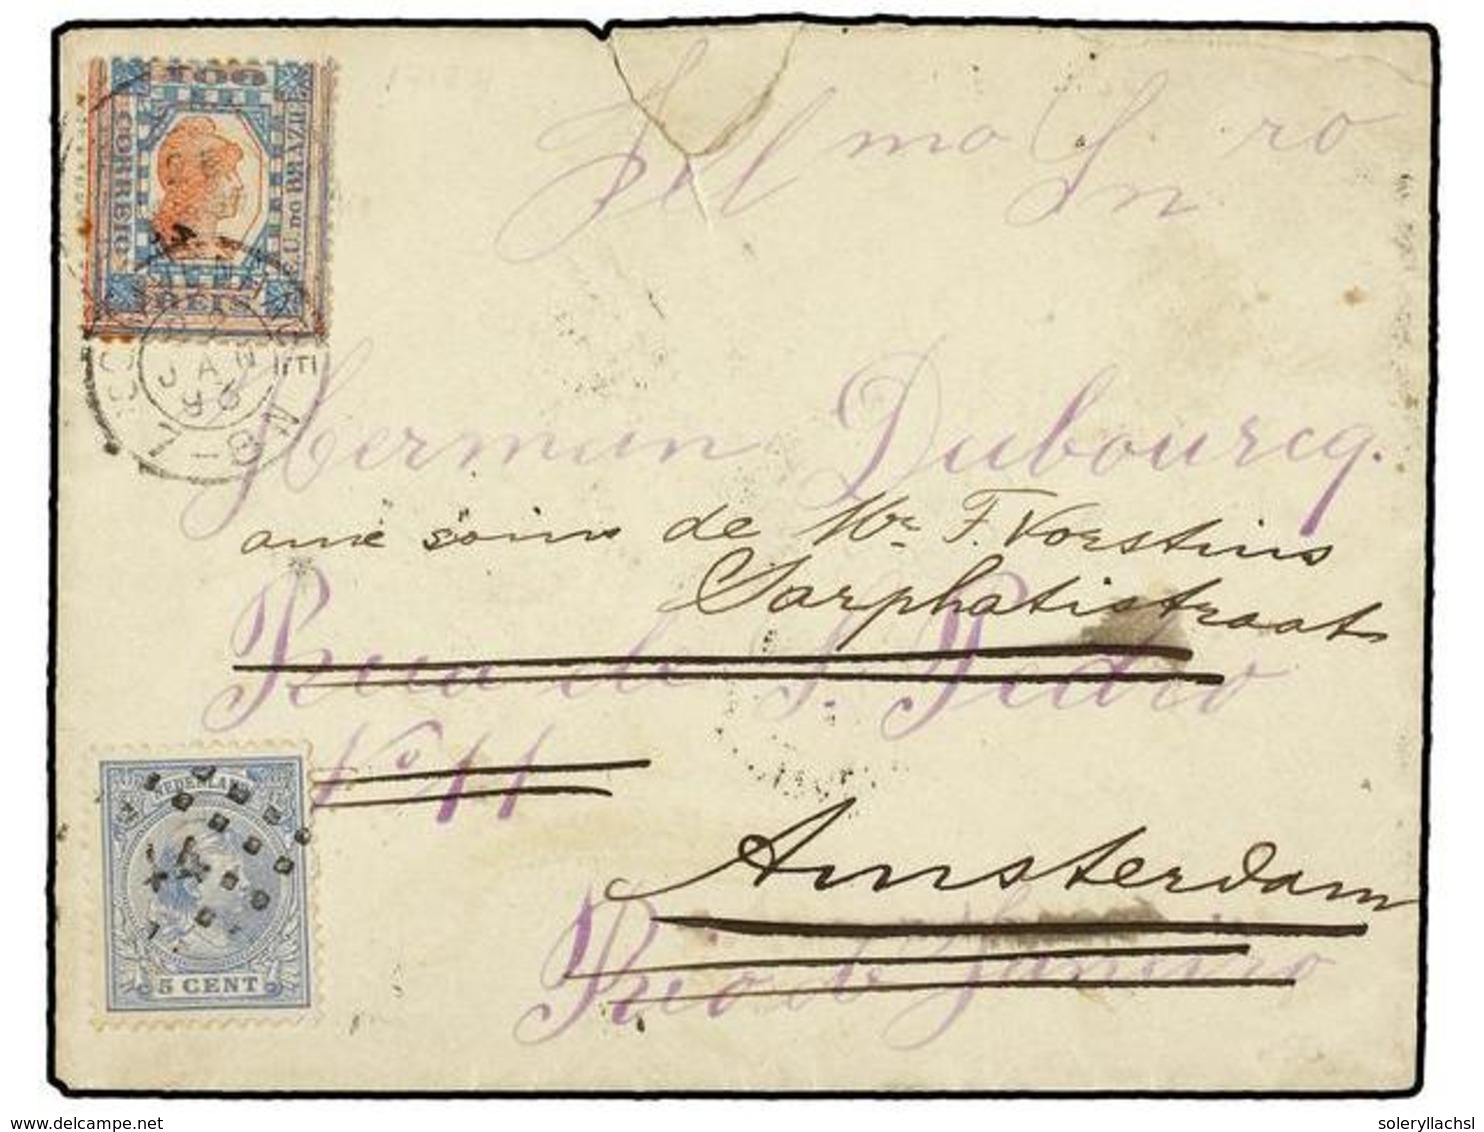 100
CORREIO
E.U. DO BRAZIL
REIS
JAN
7 - 8 N
Ill mo Sn ro
Herman Dubourcq.
aux soins de Mr. F. Vorstius
Sarphatistraat
Rua de S. Pedro
No 11
NEDERLAND
5 CENT
Amsterdam
Rio de Janeiro
www.delcampe.net
soleryllachsl